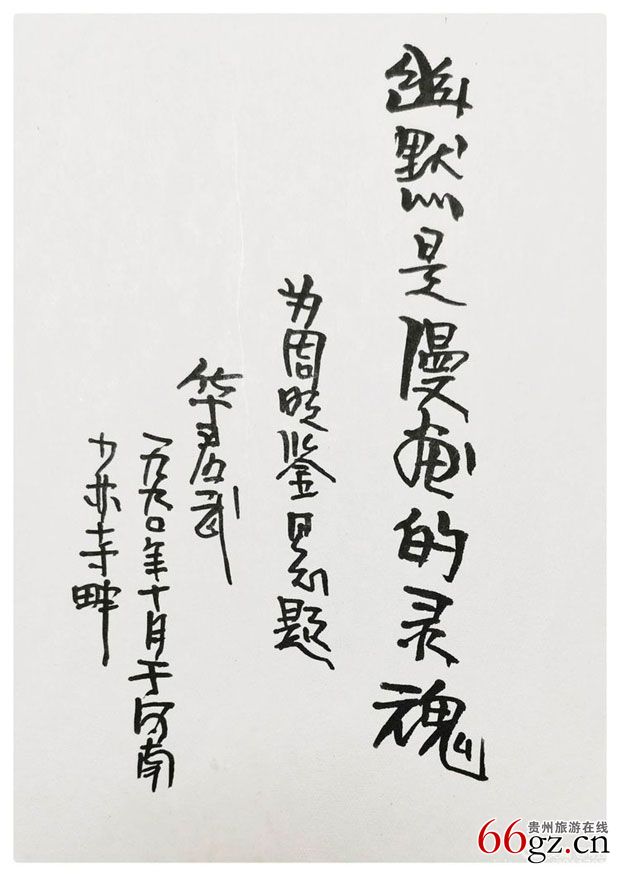 幽默是漫画的灵魂
为周晓鉴同志题
华君武
一九九〇年十月于河南
少林寺畔
贵州旅游在线
66gz.cn